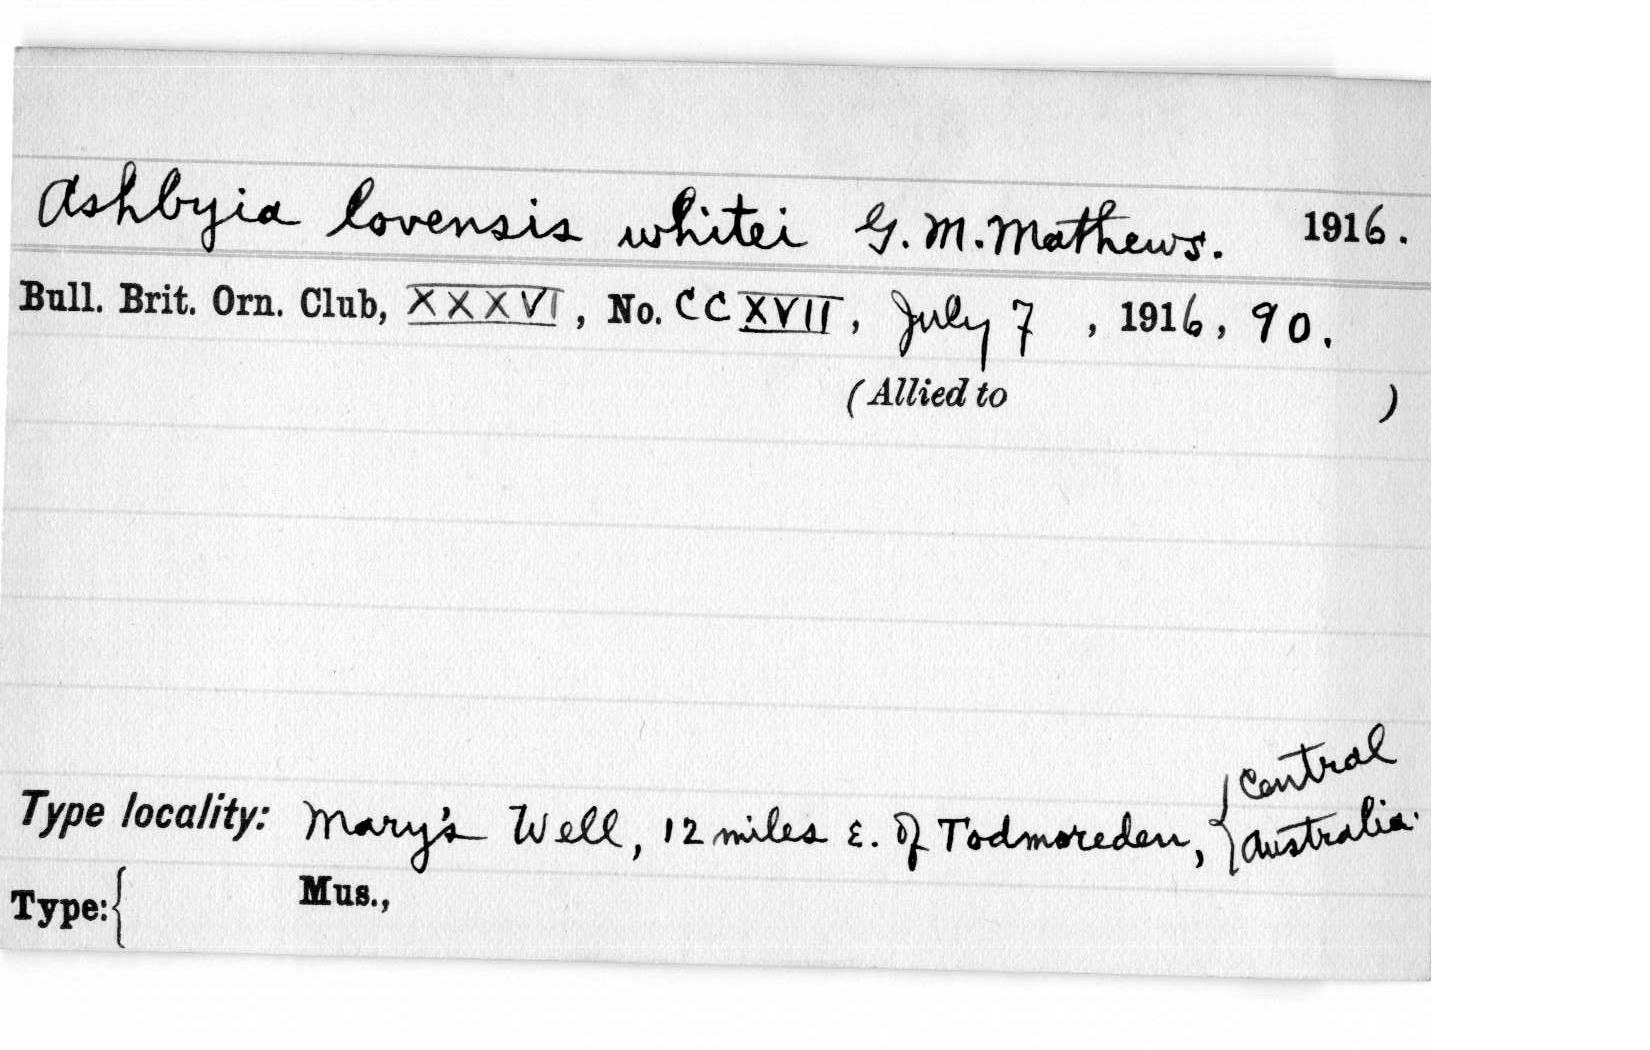 Ashbyia lovensis whitei G. M. Mathews. 1916.
Bull. Brit. Orn. Club, XXXVI, No. CCXVII, July 7, 1916, 90.
(Allied to )
Type locality: Mary's Well, 12 miles E. of Todmoreden, { Central Australia.
Type: { Mus.,